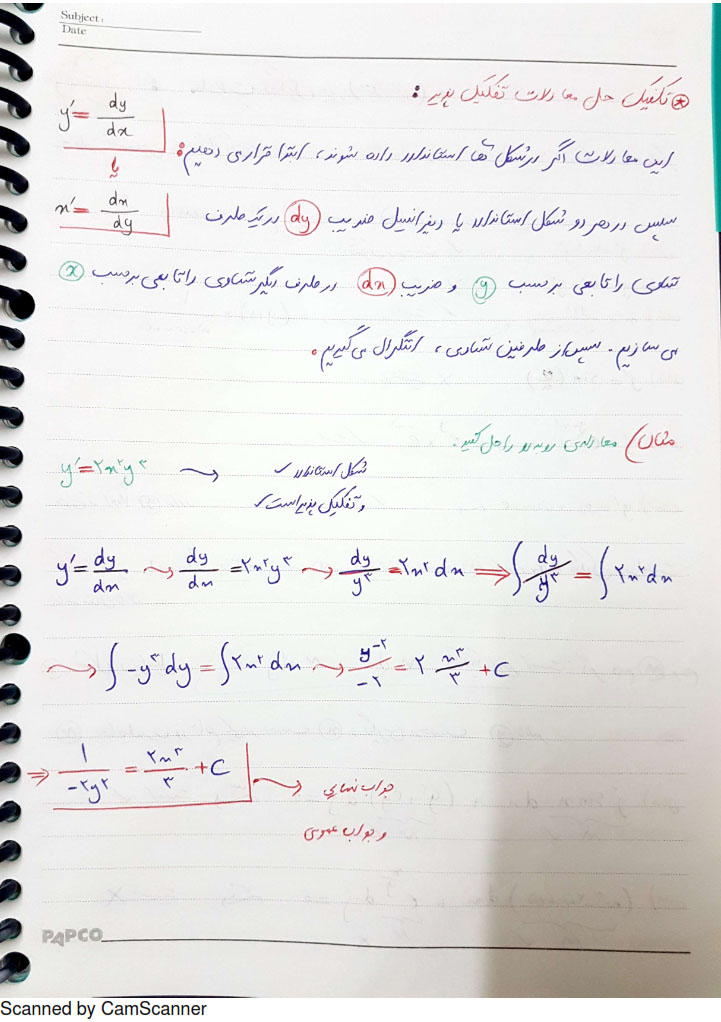 Subject :
Date
⊛ تکنیک حل معادلات تفکیک پذیر :
y′ = dy/dx
این معادلات اگر در شکل های استاندارد داده شوند، ابتدا قراری دهیم :
یا
x′ = dx/dy
سپس در هر دو شکل استاندارد یا دیفرانسیل ضریب dy در یک طرف
تساوی را تابعی برحسب y و ضریب dx در طرف دیگر تساوی را تابعی برحسب x
می سازیم. سپس از طرفین تساوی، انتگرال می گیریم.
مثال/ معادله‌ی روبه رو را حل کنید.
y′ = ۲x^۲y^۳ ⇝ شکل استاندارد ✓
و تفکیک پذیر است ✓
y′ = dy/dx ⇝ dy/dx = ۲x^۲y^۳ ⇝ dy/y^۳ = ۲x^۲ dx ⇒ ∫ dy/y^۳ = ∫ ۲x^۲ dx
⇝ ∫ -y^۳ dy = ∫ ۲x^۲ dx ⇝ y^-۲/-۲ = ۲ x^۳/۳ + C
⇒ 1/-۲y^۲ = ۲x^۳/۳ + C ⇝ جواب نهایی
و جواب عمومی
PAPCO
Scanned by CamScanner